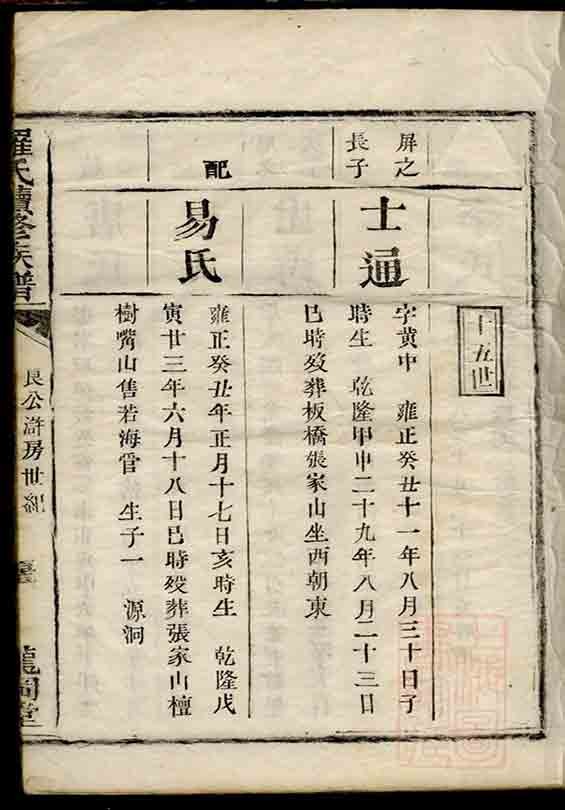 十五世
屏之
長子
士通
字黄中 雍正癸丑十一年八月三十日子
時生 乾隆甲申二十九年八月二十三日
巳時歿葬板橋張家山坐西朝東
配
易氏
雍正癸丑年正月十七日亥時生 乾隆戊
寅廿三年六月十八日巳時歿葬張家山檀
樹嘴山售若海管 生子一 源洞
羅氏續修族譜
良公滸房世紀